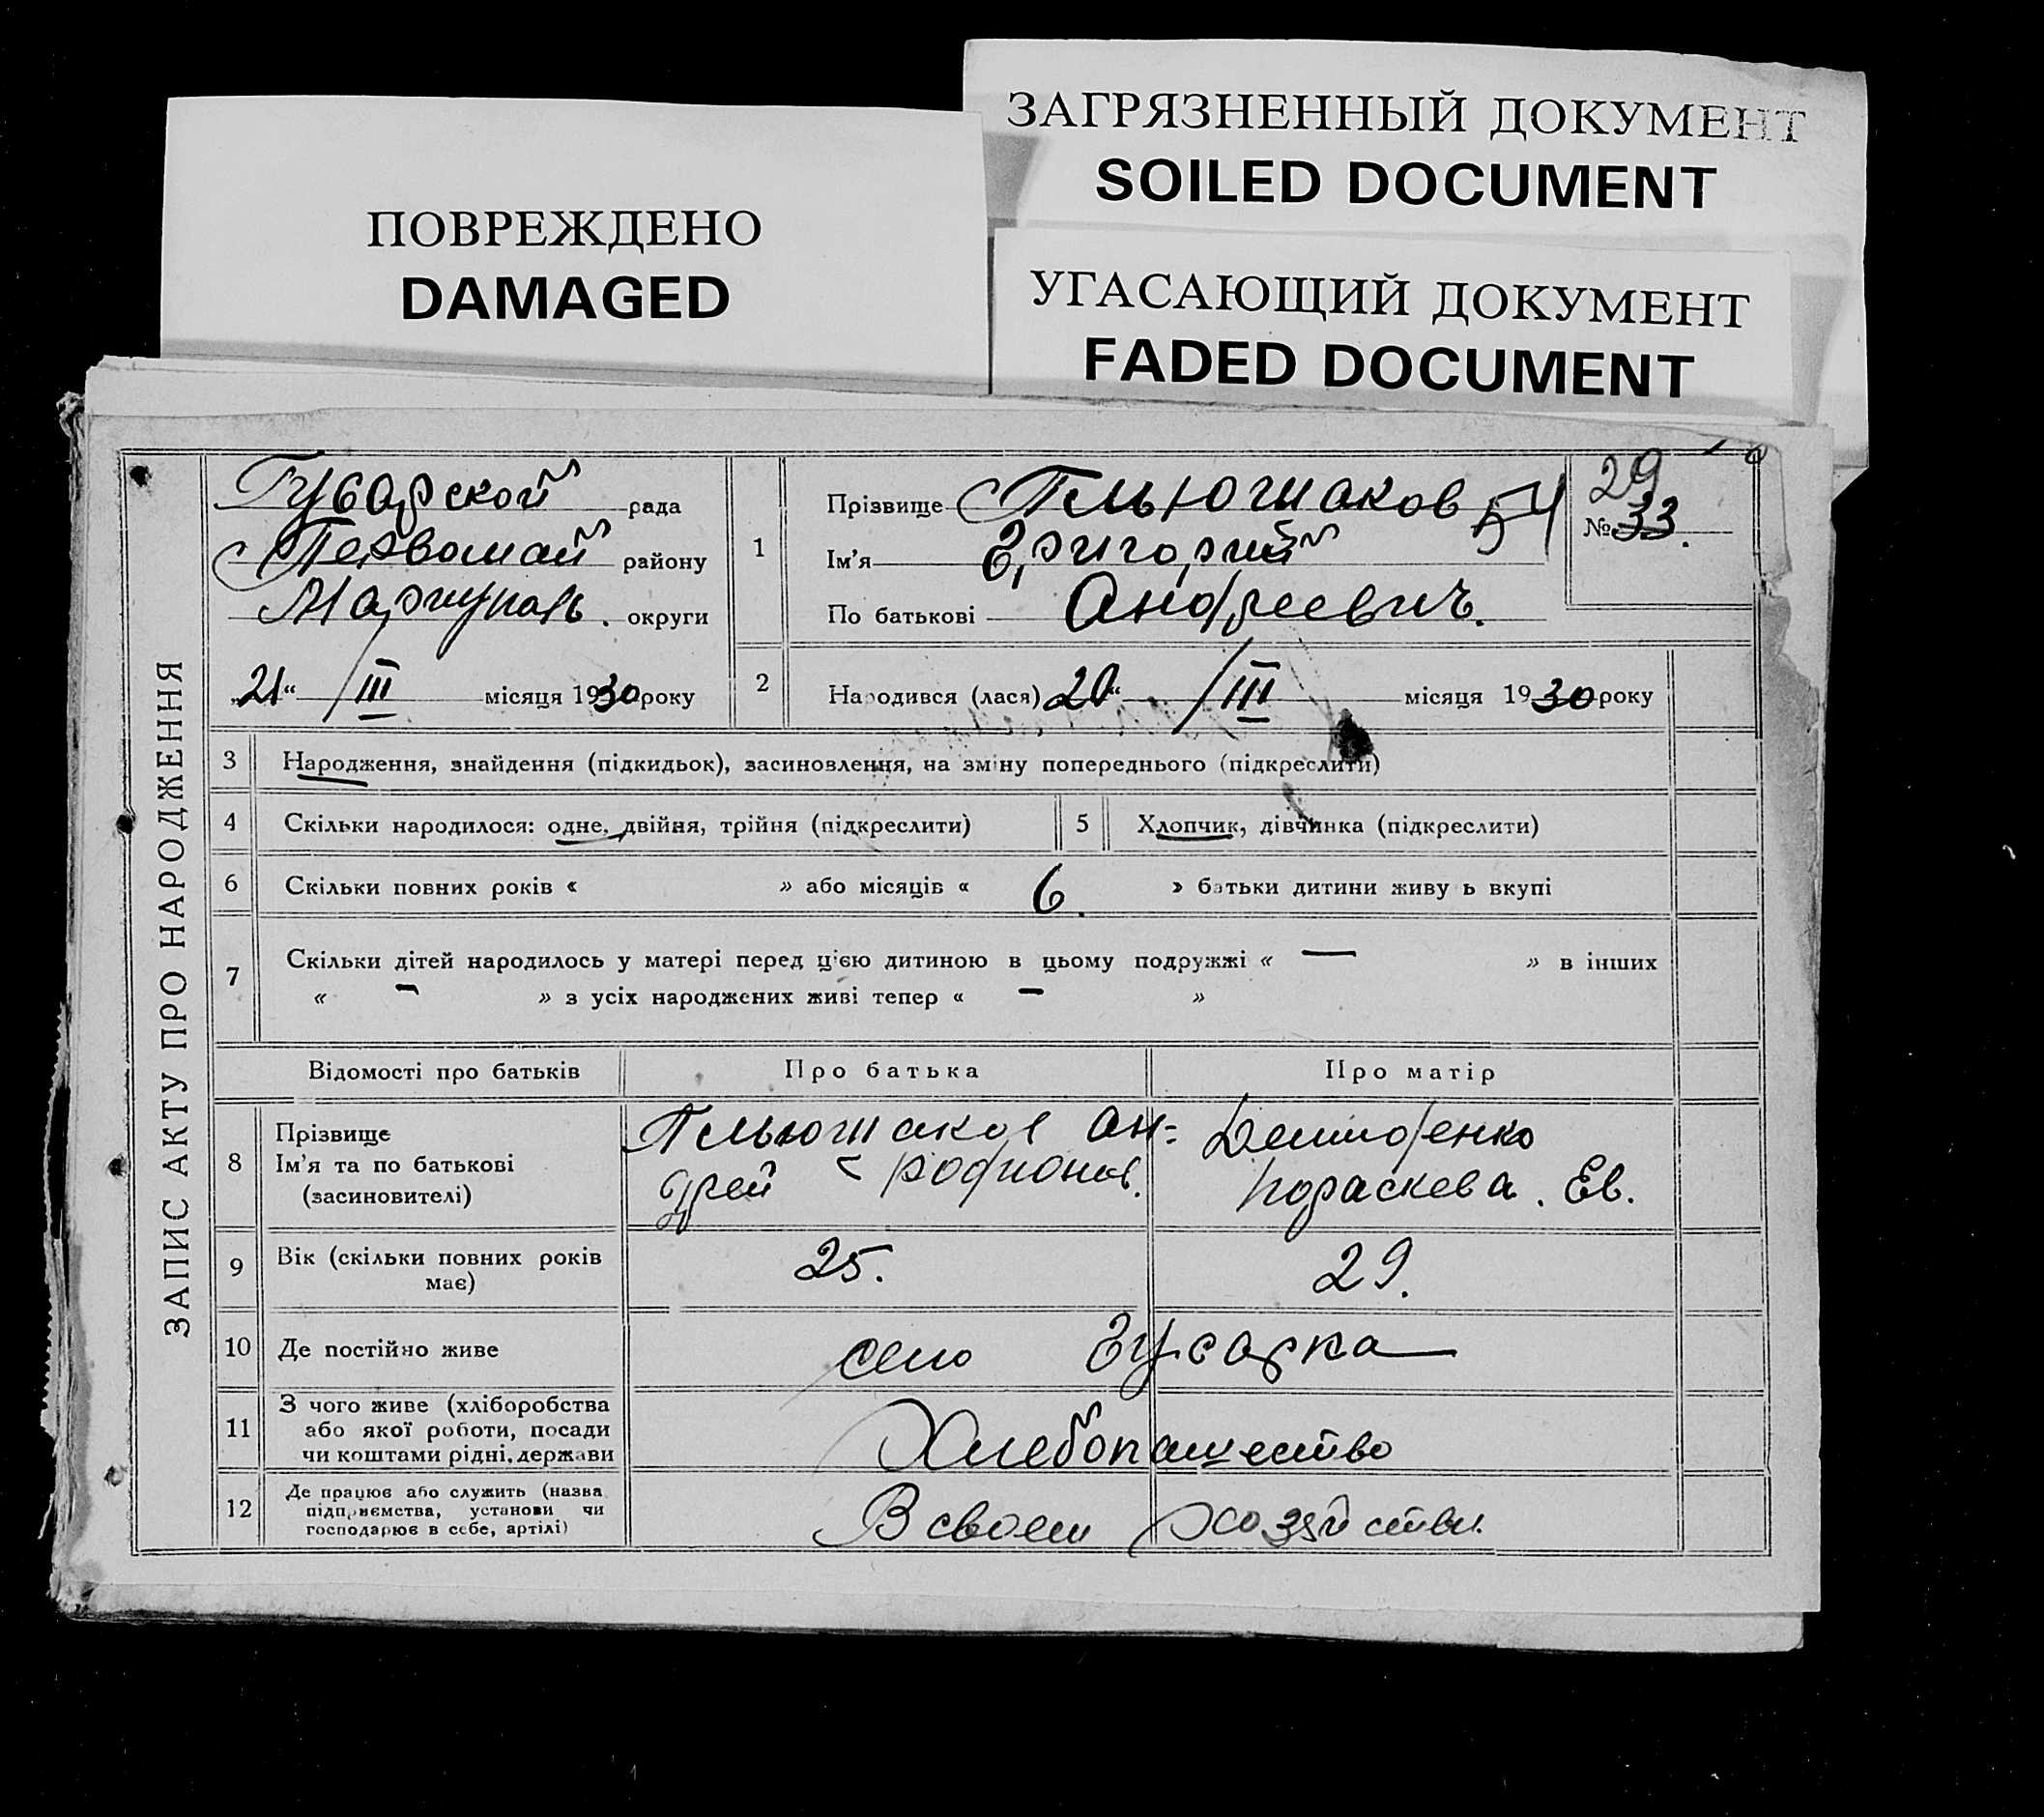 ЗАГРЯЗНЕННЫЙ ДОКУМЕНТ
SOILED DOCUMENT
ПОВРЕЖДЕНО
DAMAGED
УГАСАЮЩИЙ ДОКУМЕНТ
FADED DOCUMENT
ЗАПИС АКТУ ПРО НАРОДЖЕННЯ
Гусарской рада
Первомай району
Мариуполь. округи
„21“ /III місяця 1930 року
1
Прізвище
54
Ім'я Григорий
По батькові Андреевич.
29
№ 33.
2 Народився (лася) 20“ /III місяця 1930 року
3 Народження, знайдення (підкидьок), засиновлення, на зміну попереднього (підкреслити)
4 Скільки народилося: одне, двійня, трійня (підкреслити) 5 Хлопчик, дівчинка (підкреслити)
6 Скільки повних років « » або місяців « 6. » батьки дитини живу ь вкупі
7 Скільки дітей народилось у матері перед цією дитиною в цьому подружжі « — » в інших
« - » з усіх народжених живі тепер « - »
Відомості про батьків Про батька Про матір
8 Прізвище
Ім'я та по батькові
(засиновителі)
Ан=
дрей Родионов.
Параскева. Ев.
9 Вік (скільки повних років
має)
25. 29.
10 Де постійно живе село Гусарка
11 З чого живе (хліборобства
або якої роботи, посади
чи коштами рідні, держави
Хлебопашество
12 Де працює або служить (назва
підприємства, установи чи
господарює в себе, артілі)
В своем хозяйстви.